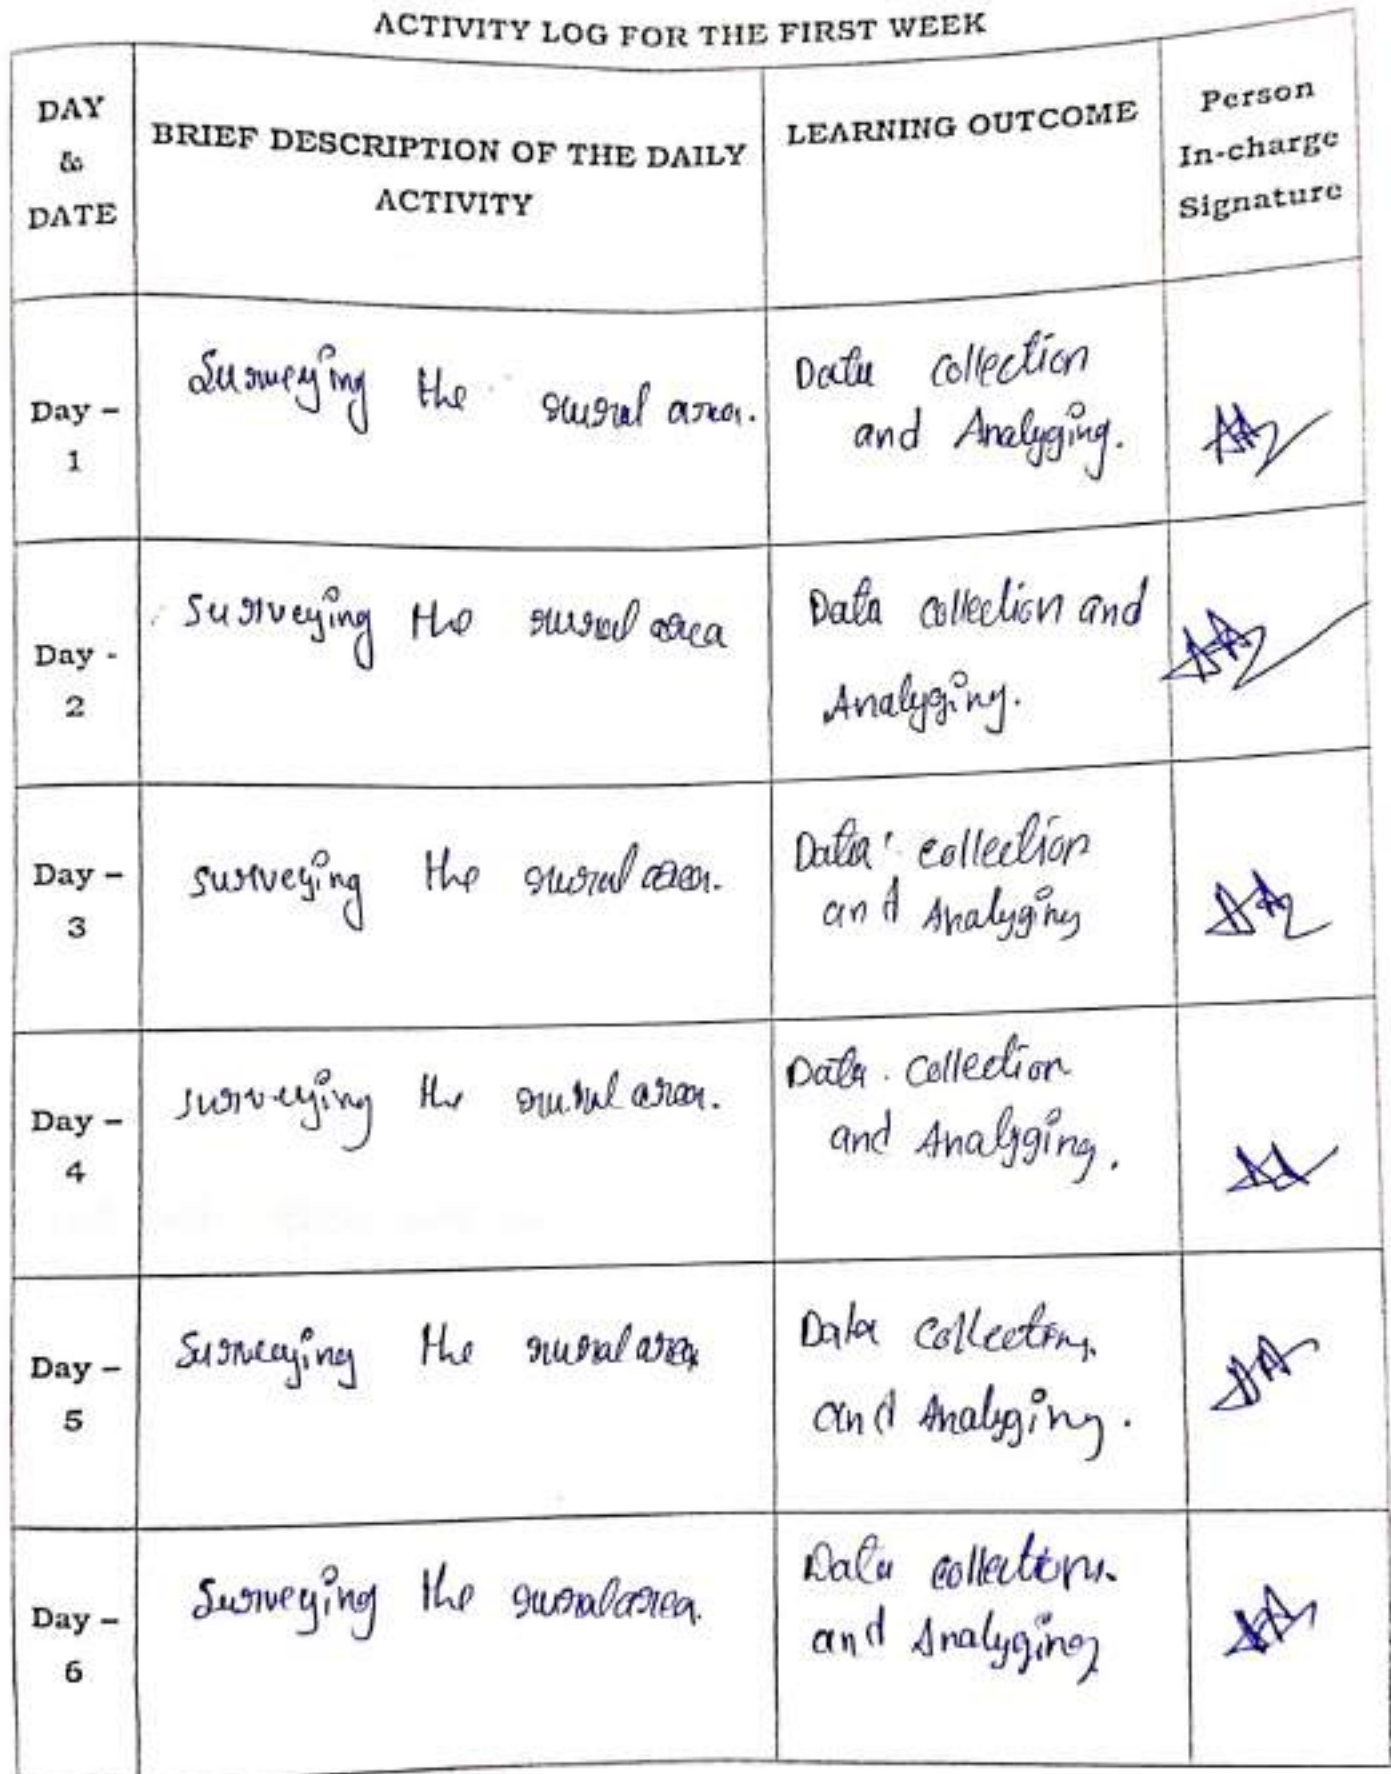 ACTIVITY LOG FOR THE FIRST WEEK
DAY
&
DATE
BRIEF DESCRIPTION OF THE DAILY
ACTIVITY
LEARNING OUTCOME
Person
In-charge
Signature
Day –
1
Surveying the rural area.
Data collection
and Analyging.
Day -
2
Surveying the rural area
Data collection and
Analyging.
Day –
3
surveying the rural area.
Data collection
and Analyging
Day –
4
surveying the rural area.
Data collection
and Analyging.
Day –
5
Surveying the rural area
Data collection
and Analyging.
Day –
6
Surveying the rural area.
Data collection
and Analyging